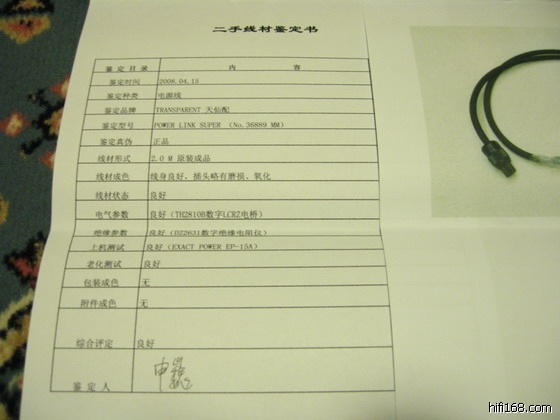 二手线材鉴定书
鉴定目录 内 容
鉴定时间 2008.04.15
鉴定种类 电源线
鉴定品牌 TRANSPARENT 天仙配
鉴定型号 POWER LINK SUPER （No.36889 MM）
鉴定真伪 正品
线材形式 2.0 M 原装成品
线材成色 线身良好，插头略有磨损、氧化
线材状态 良好
电气参数 良好（TH2810B数字LCRZ电桥）
绝缘参数 良好（DZ2631数字绝缘电阻仪）
上机测试 良好（EXACT POWER EP-15A）
老化测试 良好
包装成色 无
附件成色 无
综合评定 良好
鉴 定 人
hifi168.com